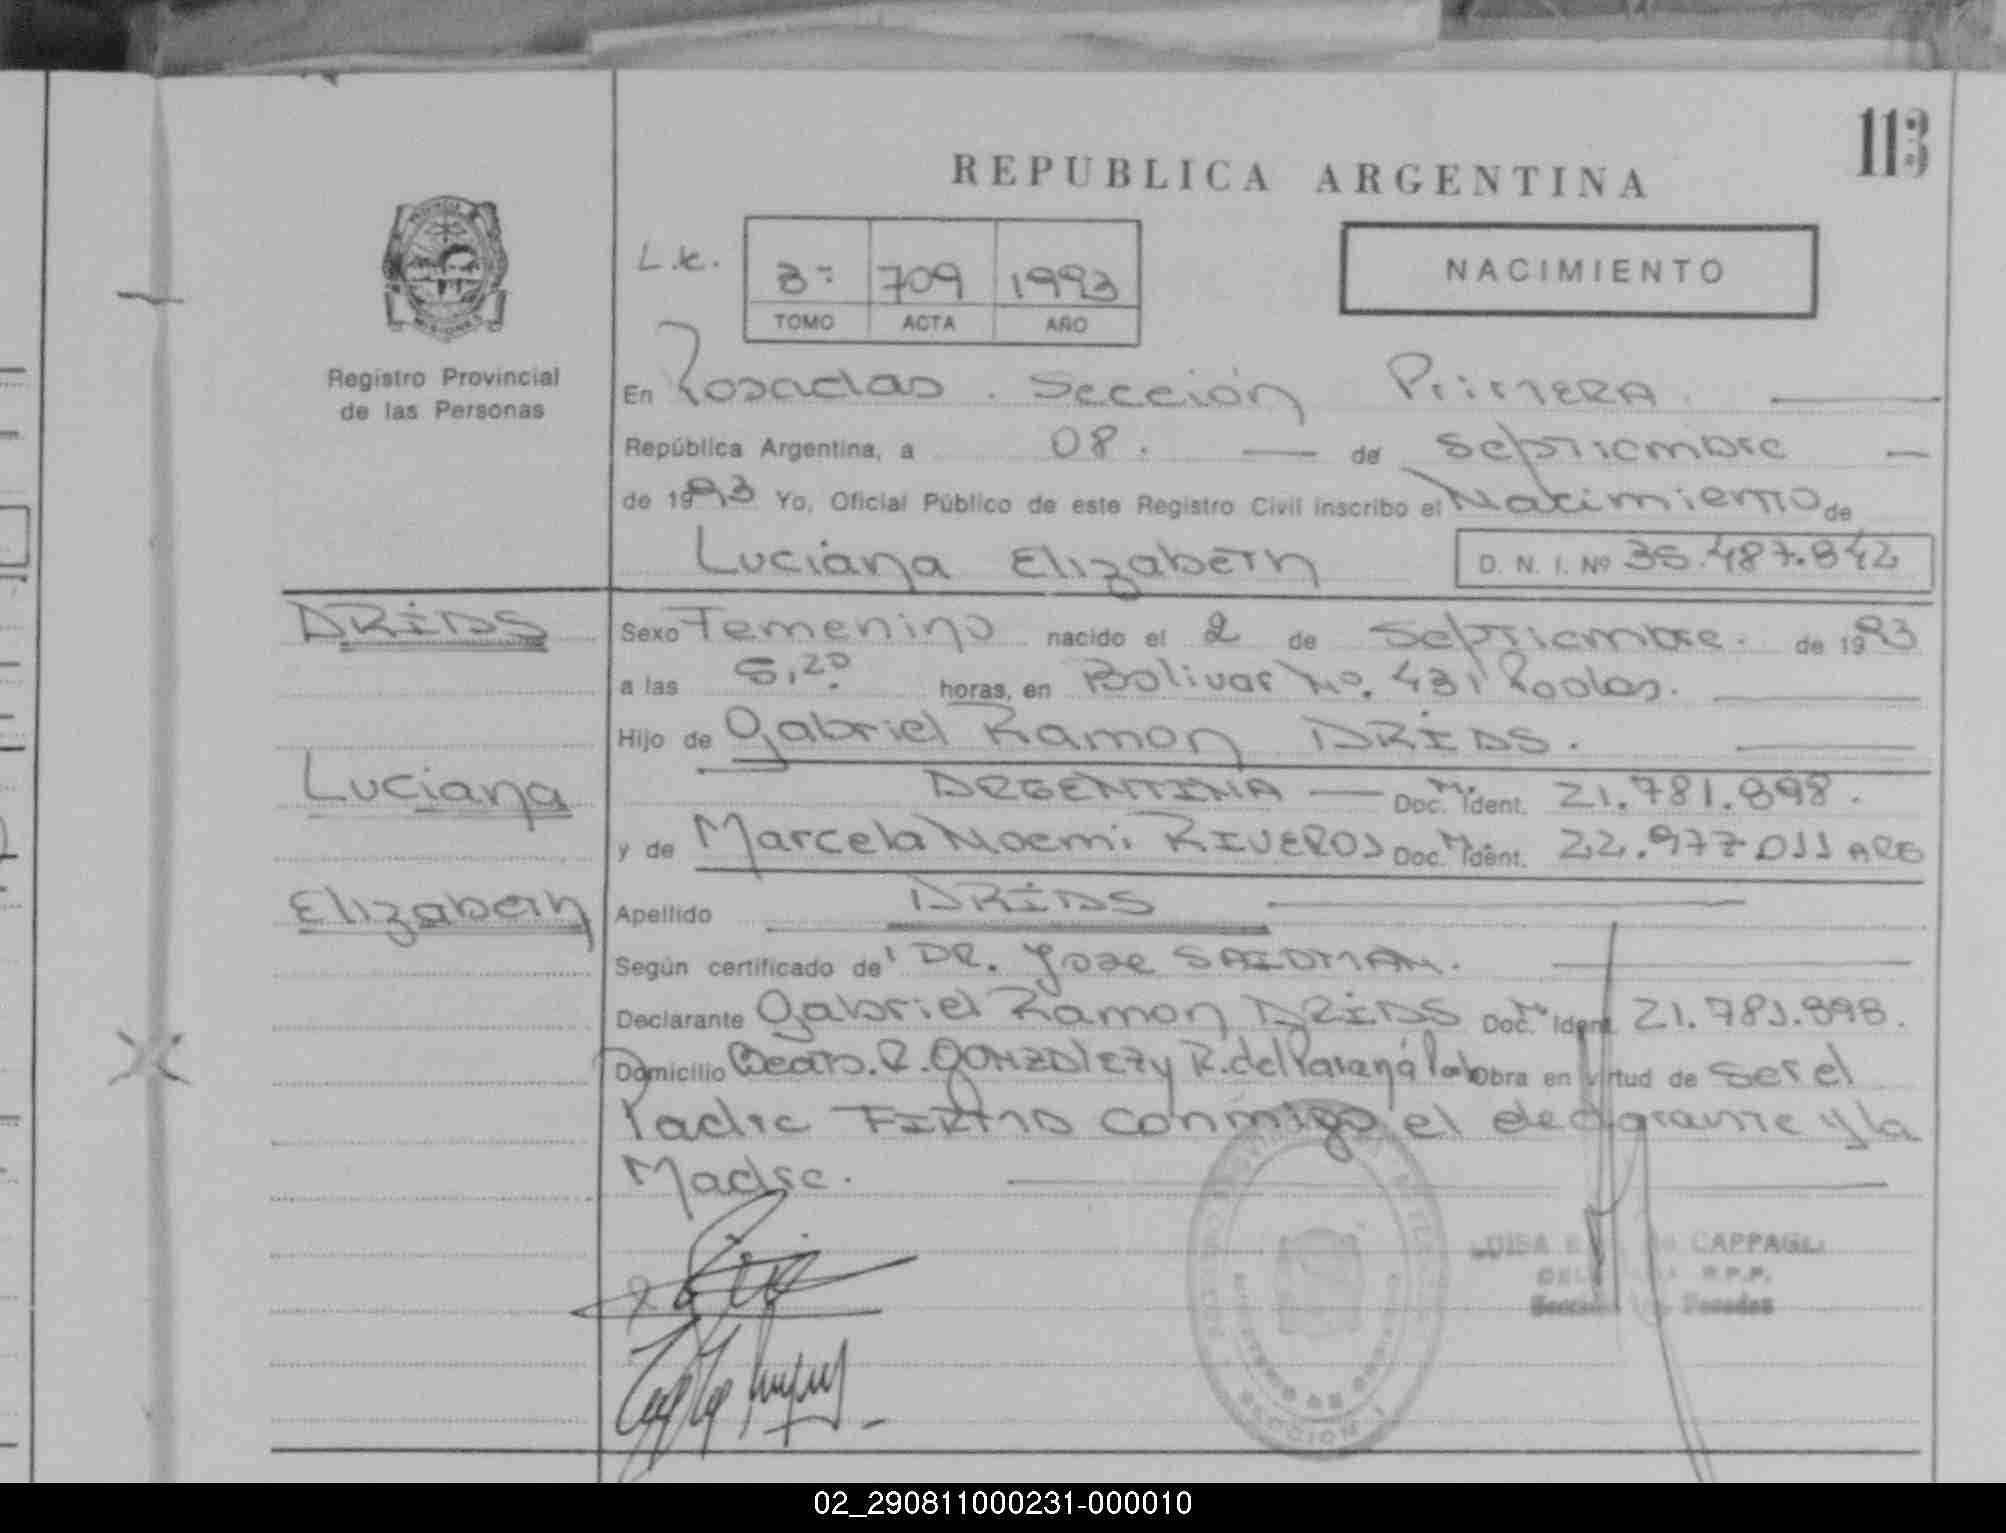 113
REPUBLICA ARGENTINA
NACIMIENTO
L.c. 3º 709 1993
TOMO ACTA AÑO
Registro Provincial
de las Personas
En Posadas. Sección Primera.
República Argentina, a 08. de Septiembre
de 1993 Yo, Oficial Público de este Registro Civil inscribo el Nacimiento de
Luciana Elizabeth D. N. I. Nº 35.487.842
ARIAS
Sexo Femenino nacido el 2 de Septiembre. de 1993
a las 5,20 horas, en Bolivar No. 431 Posdas.
Hijo de Gabriel Ramon ARIAS.
Luciana
ARGENTINA Doc. M. Ident. 21.781.898.
y de Marcela Noemi RIVEROS Doc. M. Ident. 22.977 011 ARG
Elizabeth
Apellido ARIAS
Según certificado de DR. Jose SAIDMAN.
Declarante Gabriel Ramon ARIAS Doc. M. Ident. 21.781.898.
Domicilio R. GONZALEZ y R. del Paraná obra en virtud de ser el
Padre FIRMA conmigo el declarante y la
Madre.
LUISA CAPPAGLI
R.P.P.
Posadas
SECCION 1
02_290811000231-000010